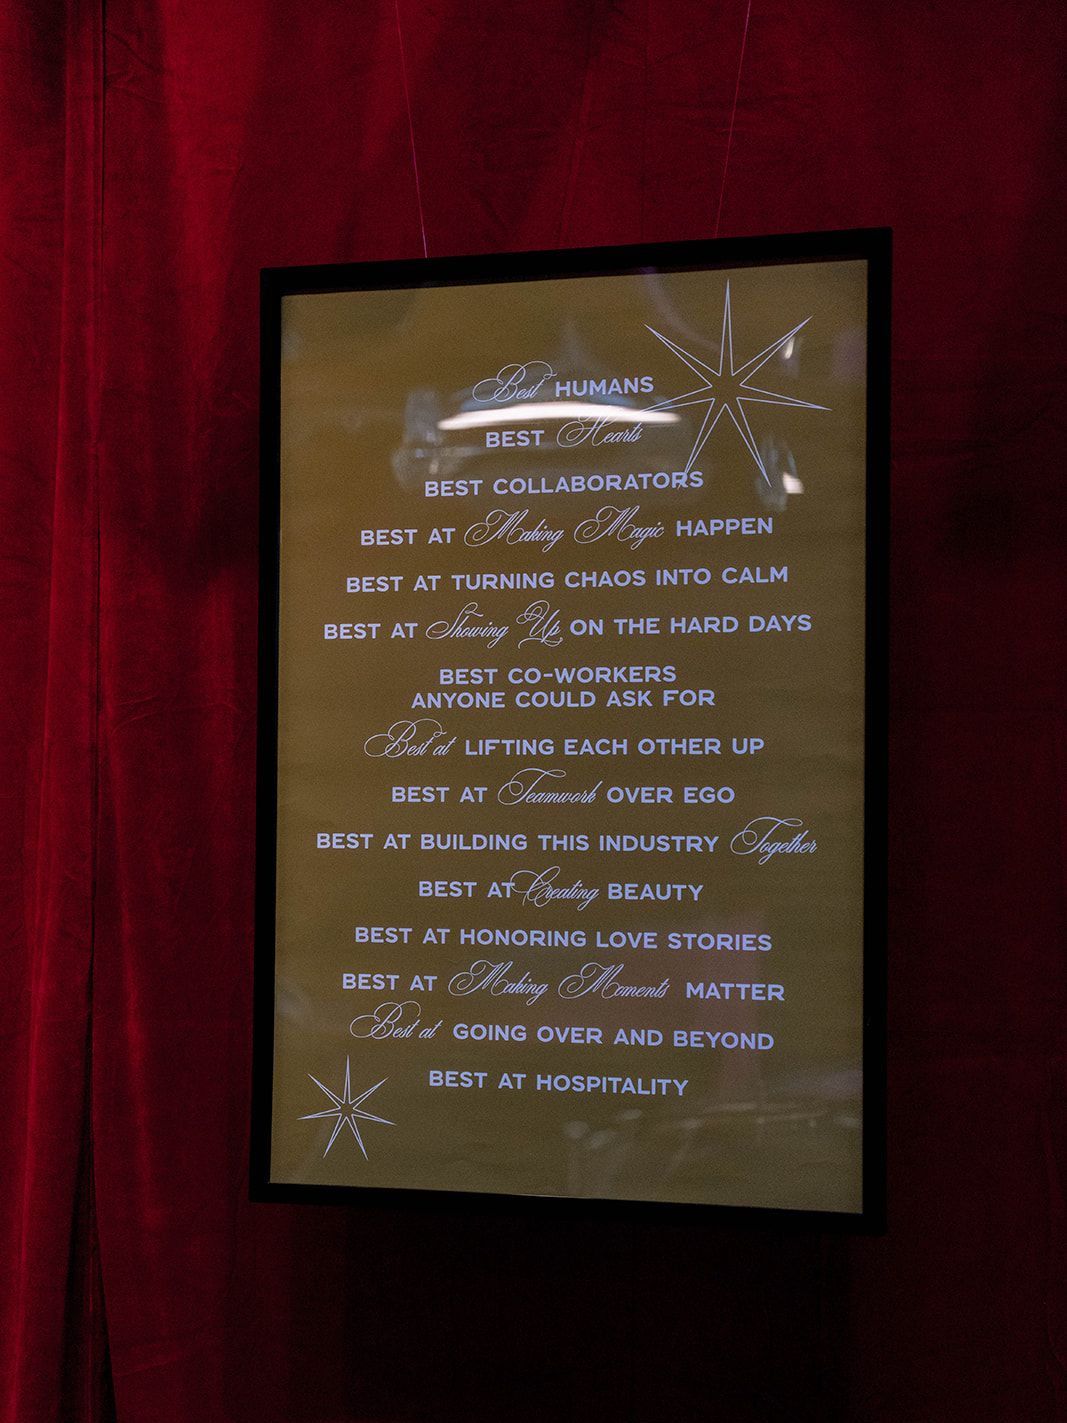 Best HUMANS
BEST Hearts
BEST COLLABORATORS
BEST AT Making Magic HAPPEN
BEST AT TURNING CHAOS INTO CALM
BEST AT Showing Up ON THE HARD DAYS
BEST CO-WORKERS
ANYONE COULD ASK FOR
Best at LIFTING EACH OTHER UP
BEST AT Teamwork OVER EGO
BEST AT BUILDING THIS INDUSTRY Together
BEST AT Creating BEAUTY
BEST AT HONORING LOVE STORIES
BEST AT Making Moments MATTER
Best at GOING OVER AND BEYOND
BEST AT HOSPITALITY